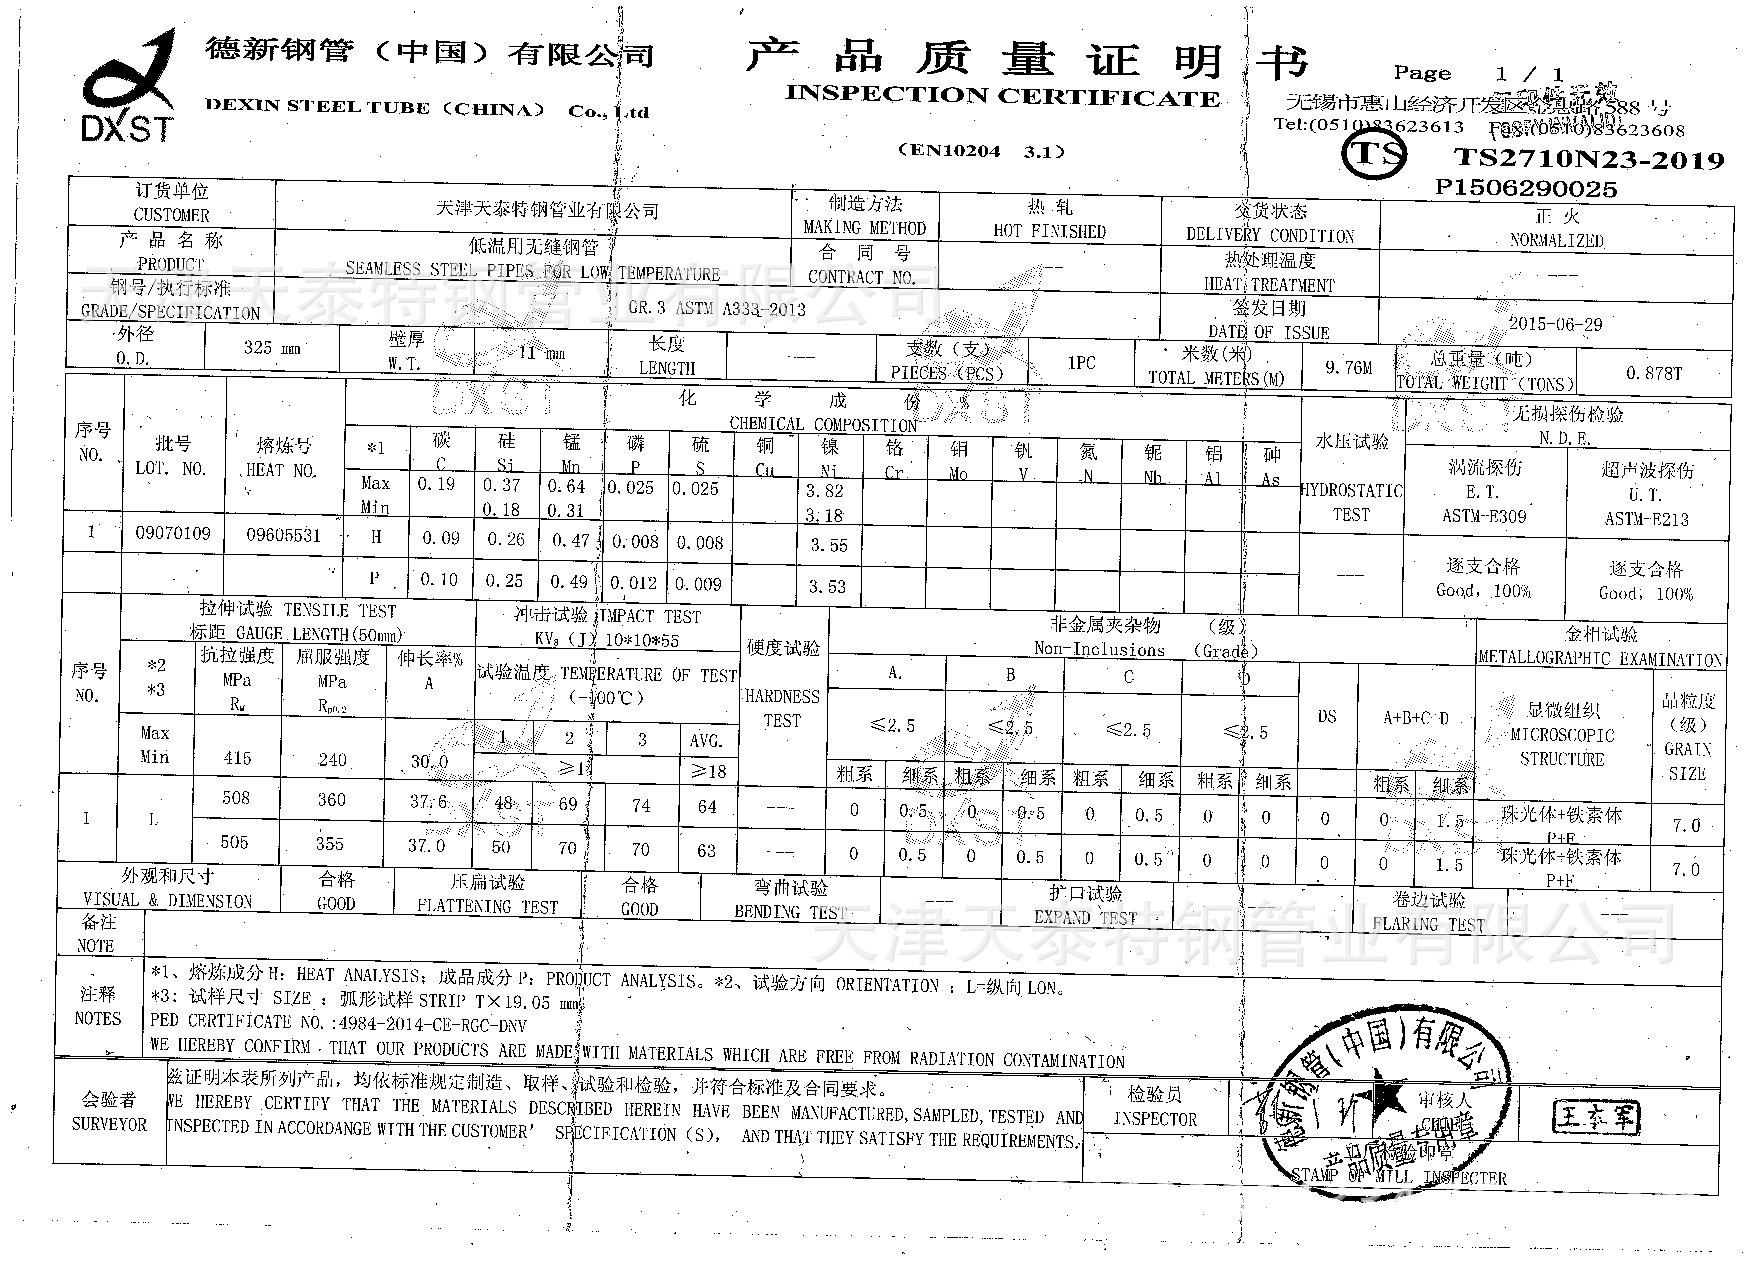 德新钢管（中国）有限公司
DEXIN STEEL TUBE（CHINA） Co., Ltd
DXST
产品质量证明书
INSPECTION CERTIFICATE
（EN10204 3.1）
Page 1 / 1
无锡市惠山经济开发区 路588号
Tel:(0510)83623613 Fax:(0510)83623608
TS TS2710N23-2019
P1506290025
订货单位 CUSTOMER 天津天泰特钢管业有限公司 制造方法 MAKING METHOD 热 轧 HOT FINISHED 交货状态 DELIVERY CONDITION 正 火 NORMALIZED
产品名称 PRODUCT 低温用无缝钢管 SEAMLESS STEEL PIPES FOR LOW TEMPERATURE 合同号 CONTRACT NO. --- 热处理温度 HEAT TREATMENT ---
钢号/执行标准 GRADE/SPECIFICATION GR.3 ASTM A333-2013 签发日期 DATE OF ISSUE 2015-06-29
外径 O.D. 325 mm 壁厚 W.T. 11 mm 长度 LENGTH --- 支数（支） PIECES（PCS） 1PC 米数(米) TOTAL METERS(M) 9.76M 总重量（吨） TOTAL WEIGHT（TONS） 0.878T
序号 NO. 批号 LOT. NO. 熔炼号 HEAT NO. 化学成份 % CHEMICAL COMPOSITION 水压试验 HYDROSTATIC TEST 无损探伤检验 N.D.E.
*1 碳 C 硅 Si 锰 Mn 磷 P 硫 S 铜 Cu 镍 Ni 铬 Cr 钼 Mo 钒 V 氮 N 铌 Nb 铝 Al 砷 As 涡流探伤 E.T. ASTM-E309 超声波探伤 U.T. ASTM-E213
Max 0.19 0.37 0.64 0.025 0.025 3.82
Min 0.18 0.31 3.18
1 09070109 09605531 H 0.09 0.26 0.47 0.008 0.008 3.55
P 0.10 0.25 0.49 0.012 0.009 3.53 --- 逐支合格 Good, 100% 逐支合格 Good, 100%
序号 NO. 拉伸试验 TENSILE TEST 标距 GAUGE LENGTH(50mm) 冲击试验 IMPACT TEST KV8 (J) 10*10*55 硬度试验 HARDNESS TEST 非金属夹杂物 （级） Non-Inclusions （Grade） 金相试验 METALLOGRAPHIC EXAMINATION
*2 *3 抗拉强度 MPa Rm 屈服强度 MPa Rp0.2 伸长率% A 试验温度 TEMPERATURE OF TEST (-100℃) A. B C D DS A+B+C+D 显微组织 MICROSCOPIC STRUCTURE 品粒度（级） GRAIN SIZE
≤2.5 ≤2.5 ≤2.5 ≤2.5
Max 1 2 3 AVG.
Min 415 240 30.0 ≥1 ≥18 粗系 细系 粗系 细系 粗系 细系 粗系 细系 粗系 细系
1 L 508 360 37.6 48 69 74 64 --- 0 0.5 0 0.5 0 0.5 0 0 0 0 1.5 珠光体+铁素体 P+F 7.0
505 355 37.0 50 70 70 63 --- 0 0.5 0 0.5 0 0.5 0 0 0 0 1.5 珠光体+铁素体 P+F 7.0
外观和尺寸 VISUAL & DIMENSION 合格 GOOD 压扁试验 FLATTENING TEST 合格 GOOD 弯曲试验 BENDING TEST --- 扩口试验 EXPAND TEST --- 卷边试验 FLARING TEST ---
备注 NOTE
注释 NOTES
*1、熔炼成分H：HEAT ANALYSIS；成品成分P：PRODUCT ANALYSIS。*2、试验方向 ORIENTATION ；L=纵向LON。
*3: 试样尺寸 SIZE ：弧形试样 STRIP T×19.05 mm
PED CERTIFICATE NO.:4984-2014-CE-RGC-DNV
WE HEREBY CONFIRM THAT OUR PRODUCTS ARE MADE WITH MATERIALS WHICH ARE FREE FROM RADIATION CONTAMINATION
会验者 SURVEYOR
兹证明本表所列产品，均依标准规定制造、取样、试验和检验，并符合标准及合同要求。
WE HEREBY CERTIFY THAT THE MATERIALS DESCRIBED HEREIN HAVE BEEN MANUFACTURED, SAMPLED, TESTED AND
INSPECTED IN ACCORDANGE WITH THE CUSTOMER' SPECIFICATION（S）, AND THAT THEY SATISHY THE REQUIREMENTS.
检验员 INSPECTOR
审核人
王泰军
STAMP OF MILL INSPECTER
德新钢管(中国)有限公司
产品质量专用章
天津天泰特钢管业有限公司
天津天泰特钢管业有限公司
DXST
DXST
DXST
DXST
DXST
DXST